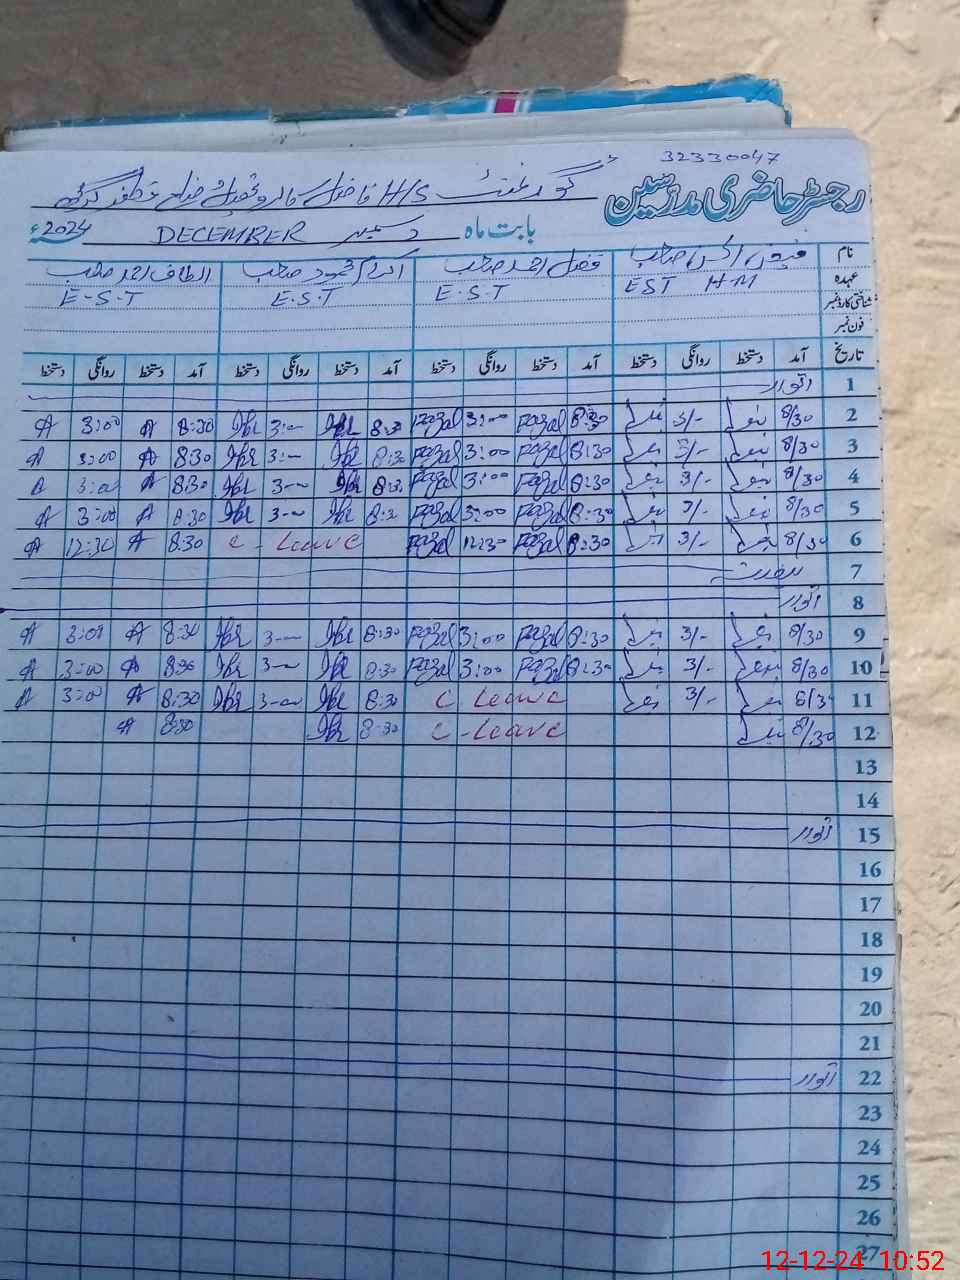 32330047
رجسٹر حاضری مدرسین
گورنمنٹ H/S فاضل کالرو تحصیل و ضلع مظفر گڑھ
بابت ماہ دسمبر DECEMBER 2024ء
نام فیض الحسن صاحب فضل احمد صاحب اکرام محمود صاحب الطاف احمد صاحب
عہدہ EST HM E.S.T E.S.T E-S-T
شناختی کارڈ نمبر
فون نمبر
تاریخ آمد دستخط روانگی دستخط آمد دستخط روانگی دستخط آمد دستخط روانگی دستخط آمد دستخط روانگی دستخط
1 اتوار
2 8/30 3/- 8:30 Fazal 3:00 Fazal 8:30 3:— 8:30 A 3:00 A
3 8/30 3/- 8:30 Fazal 3:00 Fazal 8:30 3:— 8:30 A 3:00 A
4 8/30 3/- 8:30 Fazal 3:00 Fazal 8:30 3-— 8:30 A 3:00 A
5 8/30 3/- 8:30 Fazal 3:00 Fazal 8:30 3-— 8:30 A 3:00 A
6 8/30 3/- 8:30 Fazal 12:30 Fazal C - Leave 8:30 A 12:30 A
7
8 اتوار
9 8/30 3/- 8:30 Fazal 3:00 Fazal 8:30 3-— 8:30 A 3:00 A
10 8/30 3/- 8:30 Fazal 3:00 Fazal 8:30 3-— 8:30 A 3:00 A
11 8/30 3/- C Leave 8:30 3-— 8:30 A 3:00 A
12 8/30 C - Leave 8:30 8:30 A
13
14
15 اتوار
16
17
18
19
20
21
22 اتوار
23
24
25
26
27
12-12-24 10:52